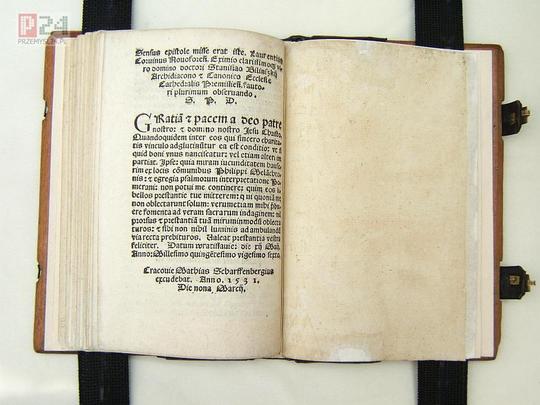 P24
PRZEMYSL24.PL
Sensus epistole misse erat iste. Laurentius
Corvinus Novoforeñ. Eximio clarissimoq; vi
ro domino doctori Stanislao
Archidiacono & Canonico Ecclesie
Cathedralis Premislieñ. fauto
ri plurimum observando.
S. P. D.
GRatiã & pacem a deo patre
nostro: & domino nostro Jesu Christo.
Quandoquidem inter eos qui sincero charita
tis vinculo adglutinãtur ea est conditio: ut si
quid boni unus nanciscatur: vel etiam alteri im
partiat. Ipse: quia miram iucunditatem hause
rim ex locis cõmunibus Philippi Melãchto
nis: & egregia psalmorum interpretatione Po
merani: non potui me continere: quim eos li
bellos prestantie tue mitterem: qui quoniã me
non oblectarunt solum: verumetiam mihi
ere fomenta ad veram sacrarum indaginem: nil
prorsus & prestantiã tuã mirummodũ oblecta
turos: & sibi non nihil luminis ad ambulandũ
via recta prebituros. Valeat prestantia vestra
feliciter. Datum wratislauie: die xij
Anno: Millesimo quingẽtesimo vigesimo sexto.
Cracovie Mathias Scharffenbergius
excudebat. Anno. 1531.
Die nona March.